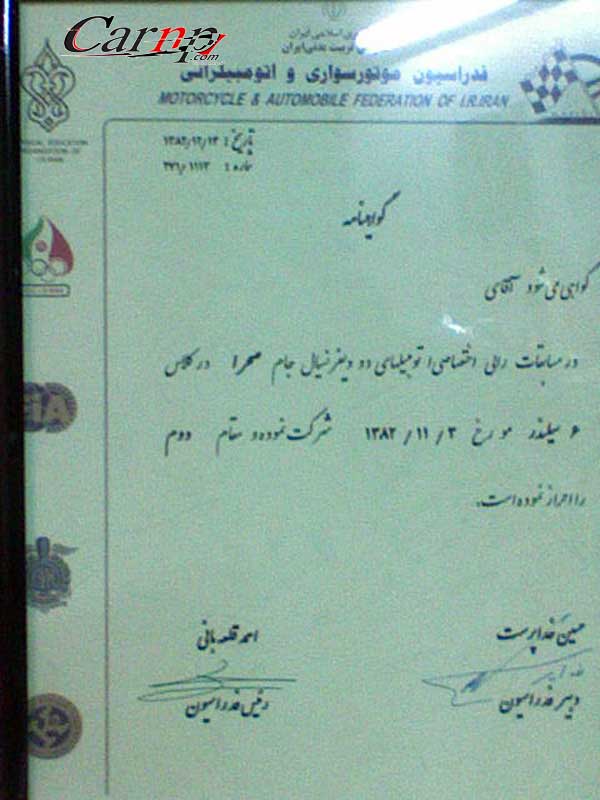 Carnp.com
جمهوری اسلامی ایران
تربیت بدنی ایران
فدراسیون موتورسواری و اتومبیلرانی
MOTORCYCLE & AUTOMOBILE FEDERATION OF I.R.IRAN
تاریخ : ۱۳۸۲/۱۲/۱۳
شماره : ۲۷۶/ ۱۱۱۳
گواهینامه
گواهی می شود آقای
در مسابقات رالی اختصاصی اتومبیلهای دو دیفرنسیال جام صحرا در کلاس
۶ سیلندر مورخ ۱۳۸۲ / ۱۱ / ۳ شرکت نموده و مقام دوم
را احراز نموده است.
حسین خداپرست
احمد قلعه بانی
دبیر فدراسیون
رئیس فدراسیون